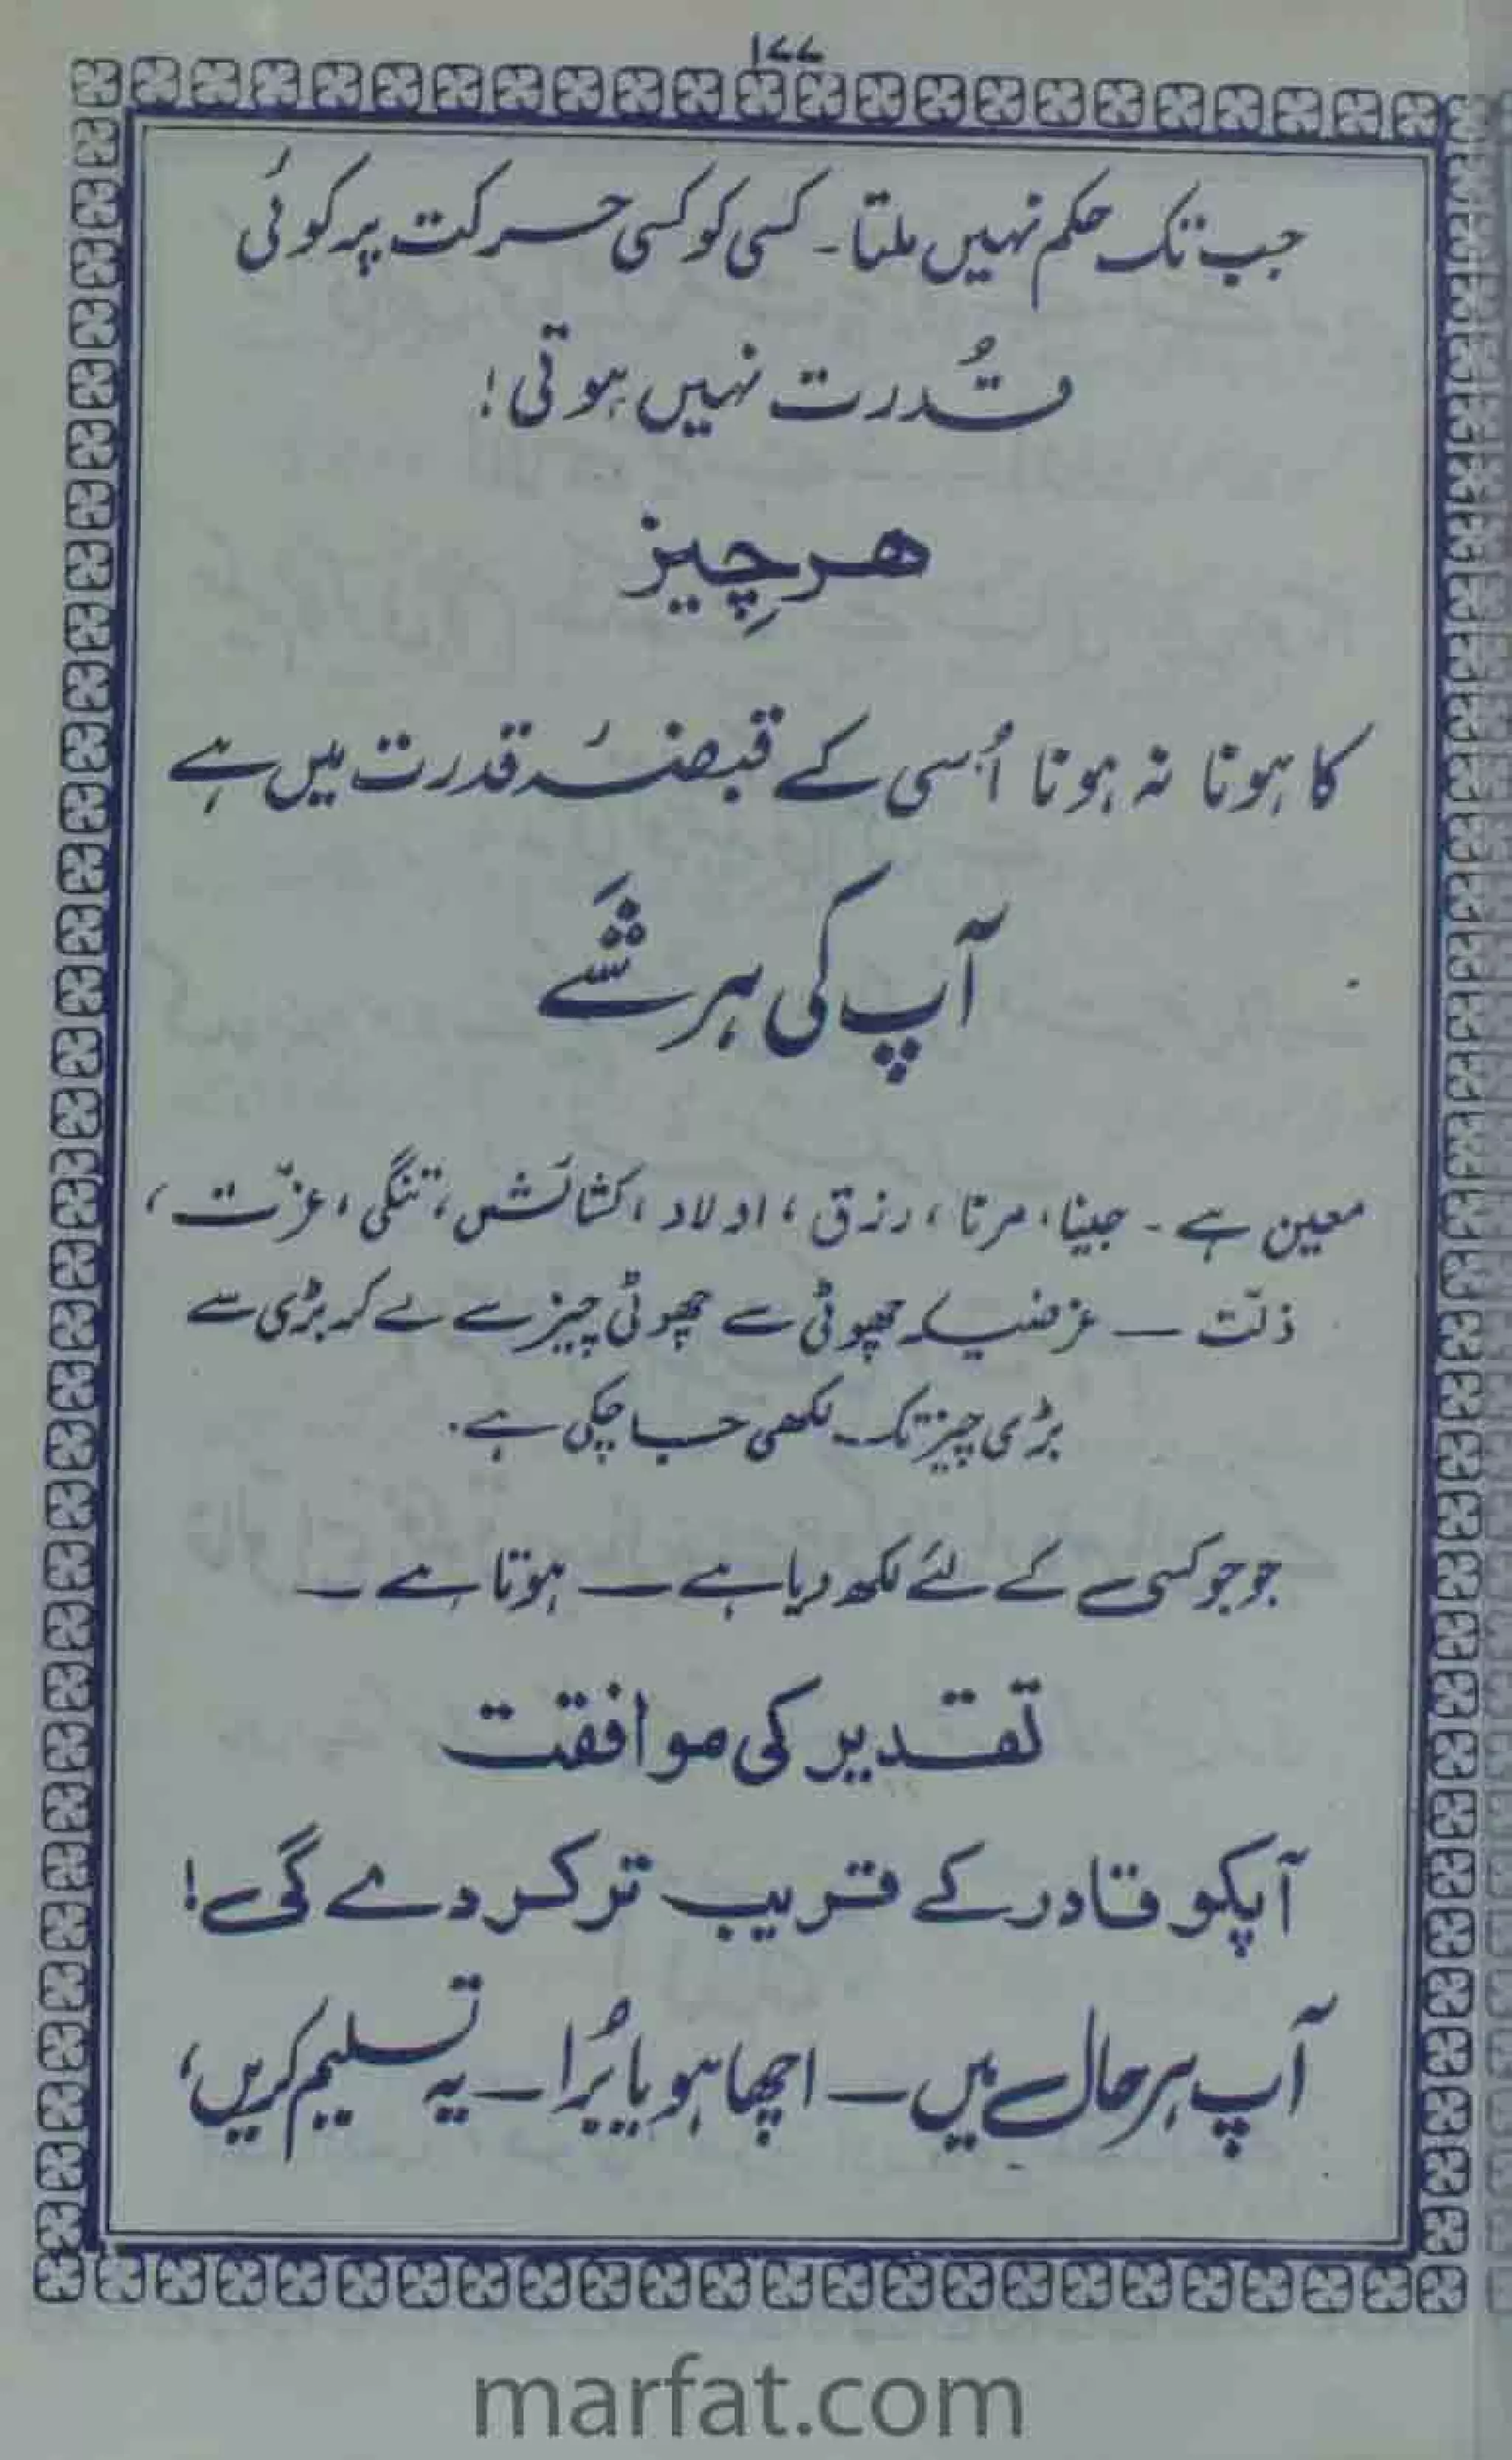 ۱۷۷
جب تک حکم نہیں ملتا۔ کسی کو کسی حرکت پہ کوئی
قُدرت نہیں ہوتی!
ہر چیز
کا ہونا نہ ہونا اُسی کے قبضۂ قدرت میں ہے
آپ کی ہر شَے
معین ہے۔ جینا، مرنا، رزق، اولاد، کشائش، تنگی، عزّت،
ذلّت — غرضیکہ چھوٹی سے چھوٹی چیز سے لے کر بڑی سے
بڑی چیز تک۔ لکھی جا چکی ہے۔
جو جو کسی کے لئے لکھ دیا ہے — ہوتا ہے —
تقدیر کی موافقت
آپکو قادر کے قریب تر کر دے گی!
آپ ہر حال میں — اچھا ہو یا بُرا — یہ تسلیم کریں،
marfat.com